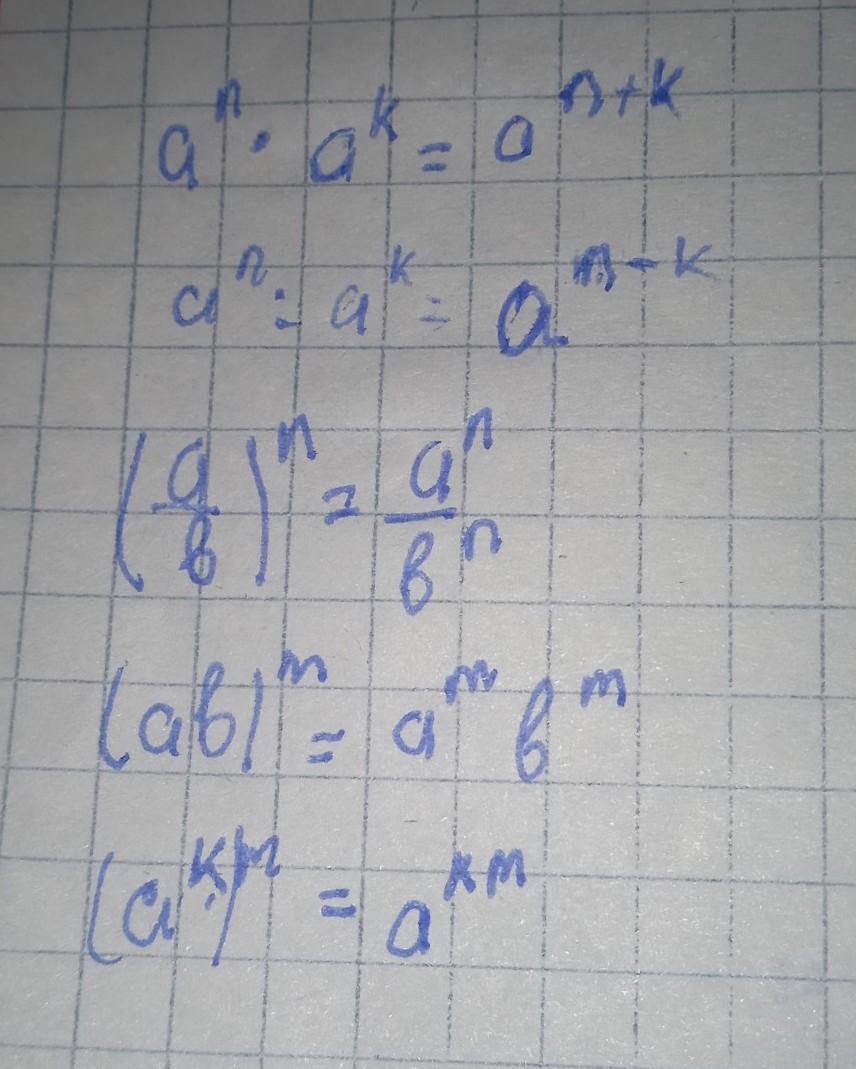 aⁿ · aᵏ = aⁿ⁺ᵏ
aⁿ : aᵏ = aⁿ⁻ᵏ
(a/b)ⁿ = aⁿ/bⁿ
(ab)ᵐ = aᵐ bᵐ
(aᵏ)ᵐ = aᵏᵐ